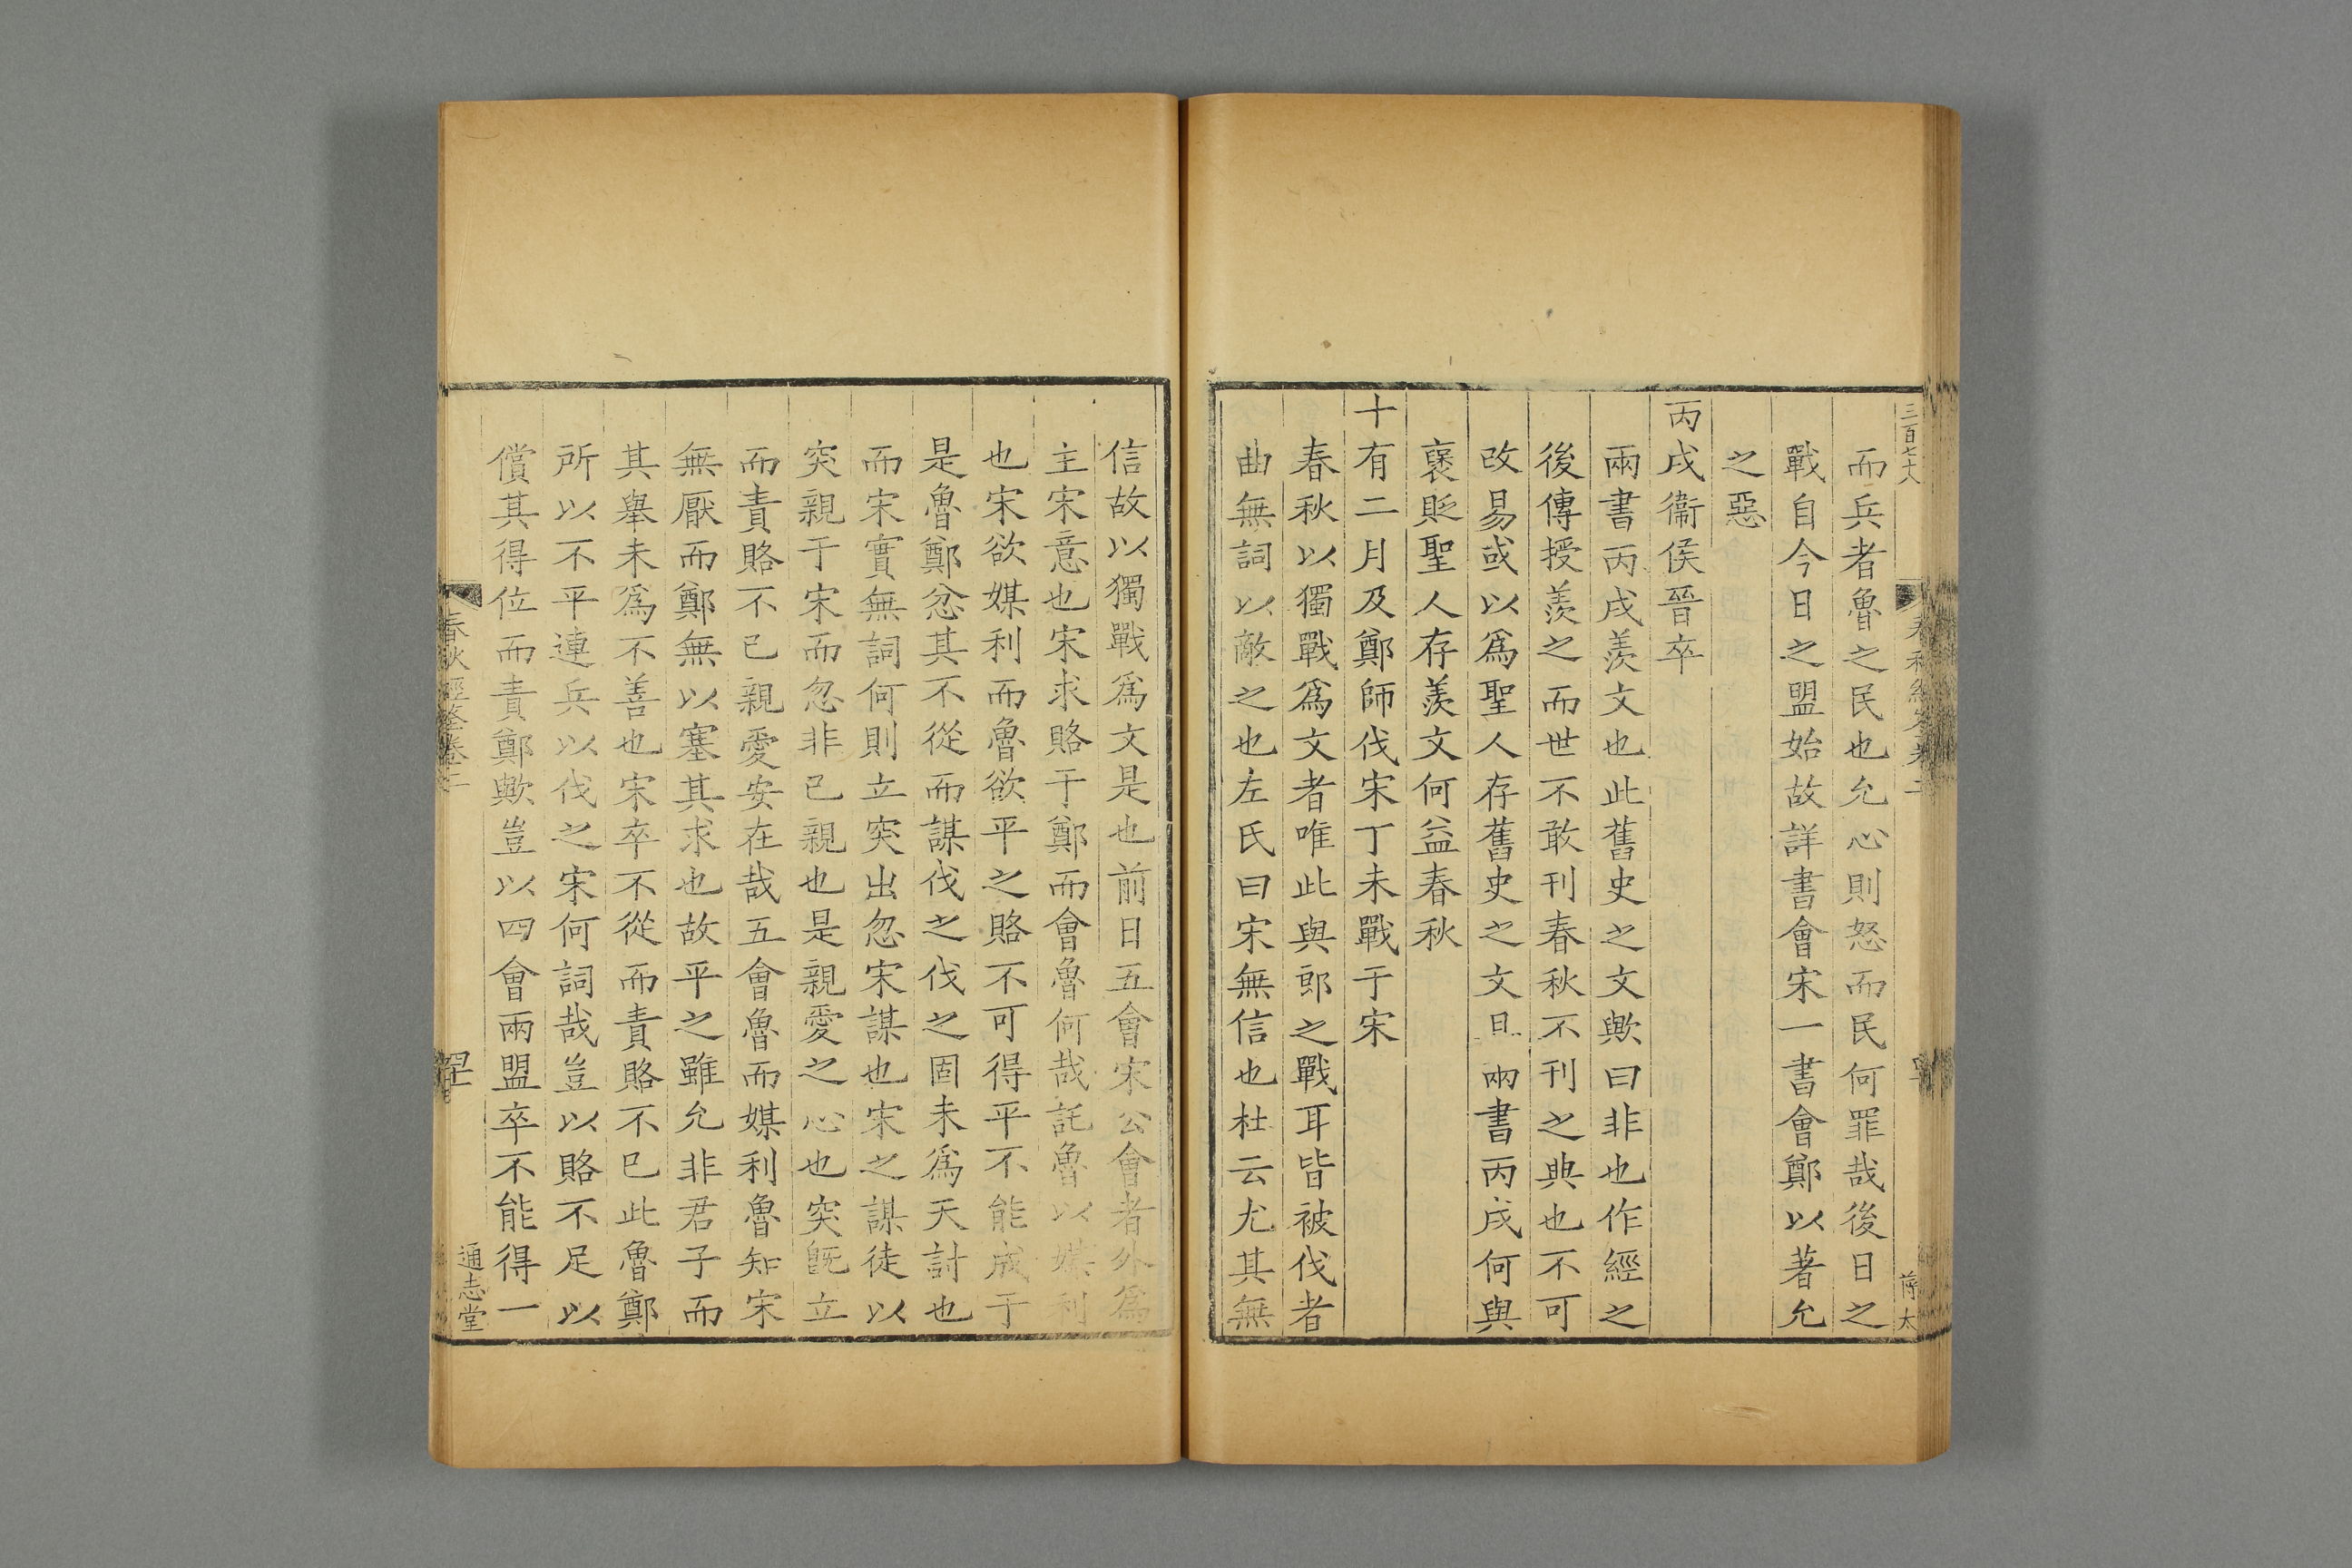 三百七十八
而兵者魯之民也允心則怒而民何罪哉後日之
戰自今日之盟始故詳書會宋一書會鄭以著允
之惡
丙戌衞侯晉卒
兩書丙戌羨文也此舊史之文歟曰非也作經之
後傳授羨之而世不敢刊春秋不刊之典也不可
改易或以爲聖人存舊史之文且兩書丙戌何與
襃貶聖人存羨文何益春秋
十有二月及鄭師伐宋丁未戰于宋
春秋以獨戰爲文者唯此與郎之戰耳皆被伐者
曲無詞以敵之也左氏曰宋無信也杜云尤其無
信故以獨戰爲文是也前日五會宋公會者外爲
主宋意也宋求賂于鄭而會魯何哉託魯以媒利
也宋欲媒利而魯欲平之賂不可得平不能成于
是魯鄭忿其不從而謀伐之伐之固未爲天討也
而宋實無詞何則立突出忽宋謀也宋之謀徒以
突親于宋而忽非已親也是親愛之心也突旣立
而責賂不已親愛安在哉五會魯而媒利魯知宋
無厭而鄭無以塞其求也故平之雖允非君子而
其舉未爲不善也宋卒不從而責賂不已此魯鄭
所以不平連兵以伐之宋何詞哉豈以賂不足以
償其得位而責鄭歟豈以四會兩盟卒不能得一
春秋經筌卷二
通志堂